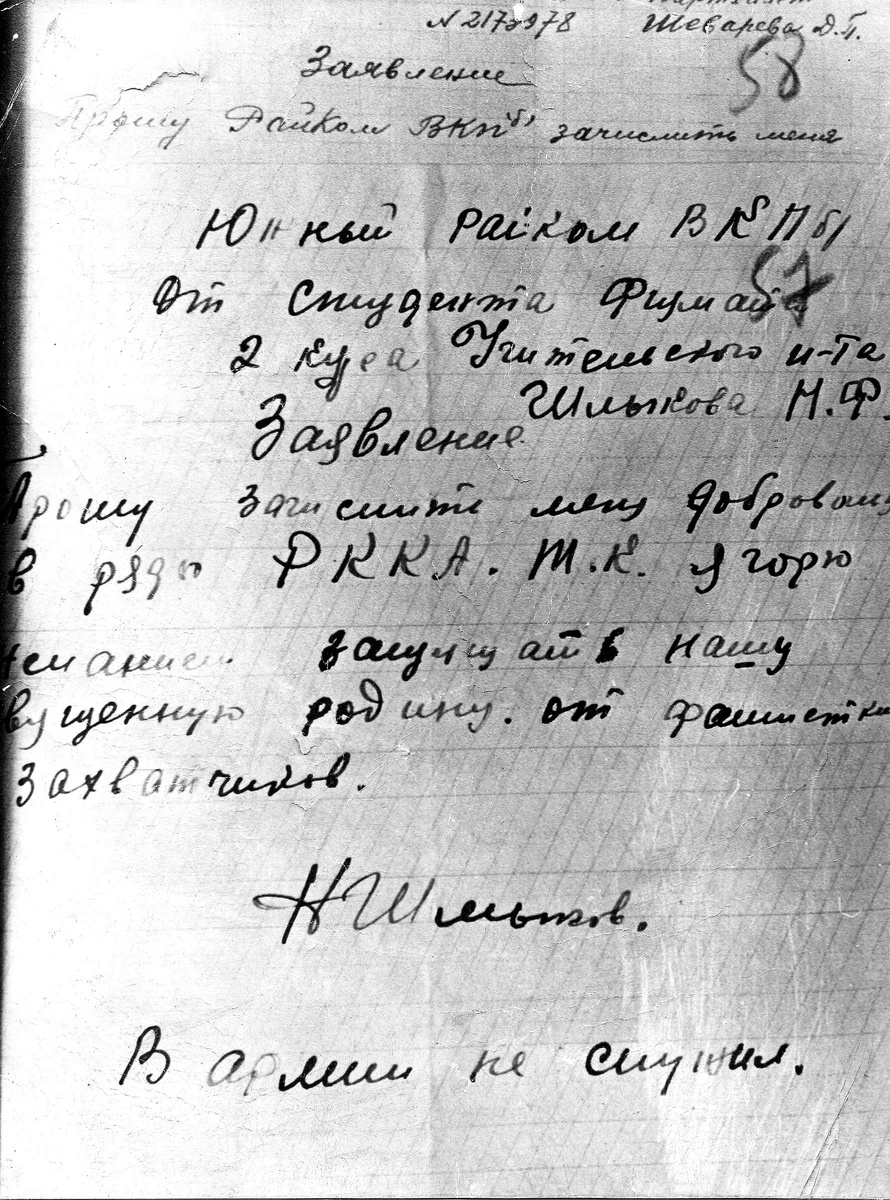 N 2173978 Шеварева Д.П.
58
Заявление
Прошу Райком ВКП(б) зачислить меня
Южный райком ВКПб)
57
От студента Физмата
2 курса Учительского и-та
Шлыкова Н.Ф.
Заявление
Прошу зачислить меня доброволь
в ряды РККА. Т.К. я горю
желанием защищать нашу
священную родину. от фашистки
захватчиков.
НШлыков.
В армии не служил.